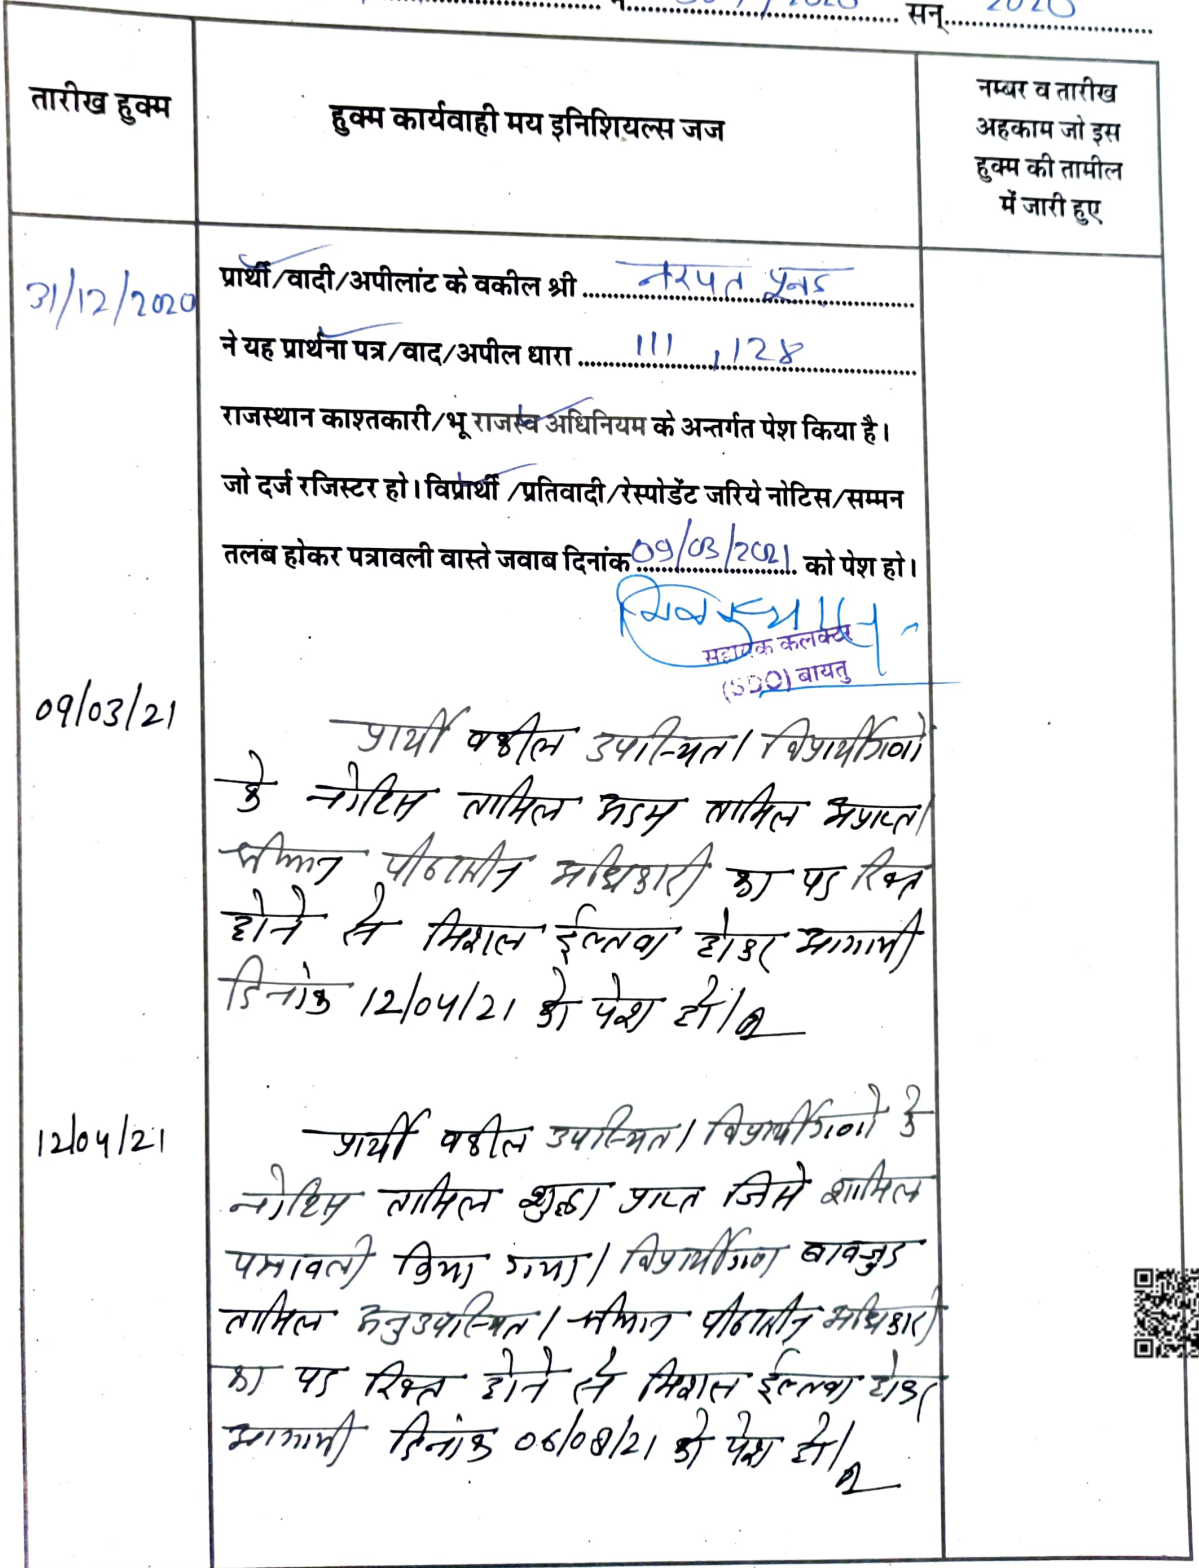 सन् 2020
तारीख हुक्म
हुक्म कार्यवाही मय इनिशियल्स जज
नम्बर व तारीख
अहकाम जो इस
हुक्म की तामील
में जारी हुए
31/12/2020
प्रार्थी/वादी/अपीलांट के वकील श्री नरपत पूनड़
ने यह प्रार्थना पत्र/वाद/अपील धारा 111, 128
राजस्थान काश्तकारी/भू राजस्व अधिनियम के अन्तर्गत पेश किया है।
जो दर्ज रजिस्टर हो। विप्रार्थी/प्रतिवादी/रेस्पोडेंट जरिये नोटिस/सम्मन
तलब होकर पत्रावली वास्ते जवाब दिनांक 09/03/2021 को पेश हो।
सहायक कलक्टर
(SDO) बायतु
09/03/21
प्रार्थी वकील उपस्थित। विप्रार्थीगणो
के नोटिस तामिल अदम तामिल अप्राप्त।
श्रीमान पीठासीन अधिकारी का पद रिक्त
होने से मिशल ईल्तवा होकर आगामी
दिनांक 12/04/21 को पेश हो।
12/04/21
प्रार्थी वकील उपस्थित। विप्रार्थीगणो के
नोटिस तामिल शुदा प्राप्त जिसे शामिल
पत्रावली किया गया। विप्रार्थीगण बावजुद
तामिल अनुउपस्थित। श्रीमान पीठासीन अधिकारी
का पद रिक्त होने से मिशल ईल्तवा होकर
आगामी दिनांक 06/08/21 को पेश हो।